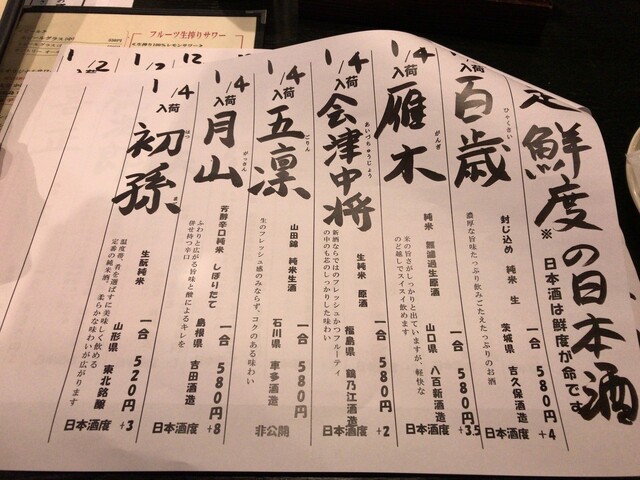 鮮度の日本酒
※日本酒は鮮度が命です
1/4
入荷
百歳
ひゃくさい
封じ込め 純米 生
濃厚な旨味たっぷり飲みごたえたっぷりのお酒
一合 580円
茨城県 吉久保酒造
日本酒度 +4
1/4
入荷
雁木
がんぎ
純米 無濾過生原酒
米の旨さがしっかりと出ていますが、軽快な
のど越しでスイスイ飲めます
一合 580円
山口県 八百新酒造
日本酒度 +3.5
1/4
入荷
会津中将
あいづちゅうじょう
生純米 原酒
新酒ならではのフレッシュかつフルーティ
の中のも芯のしっかりした味わい
一合 580円
福島県 鶴乃江酒造
日本酒度 +2
1/4
入荷
五凛
ごりん
山田錦 純米生酒
生のフレッシュ感のみならず、コクのある味わい
一合 580円
石川県 車多酒造
非公開
1/4
入荷
月山
がっさん
芳醇辛口純米 しぼりたて
ふわりと広がる旨味と酸によるキレを
併せ持つ辛口
一合 580円
島根県 吉田酒造
日本酒度 +8
1/4
入荷
初孫
はつまご
生酛純米
温度帯、肴を選ばずに美味しく飲める
定番の純米酒。柔らかな味わいが広がります
一合 520円
山形県 東北銘醸
日本酒度 +3
フルーツ生搾りサワー
1/2